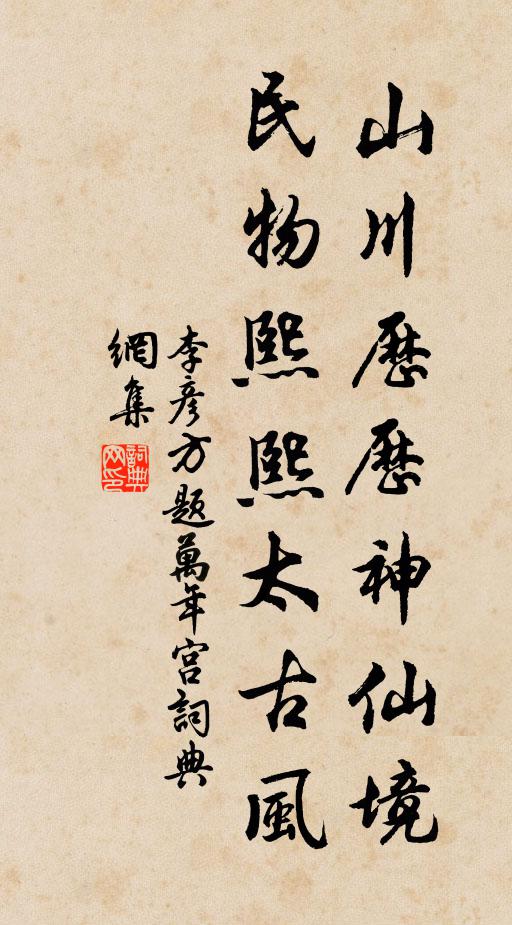 山川歷歷神仙境
民物熙熙太古風
李彥方題萬年宮詞典
網集
詞典网印